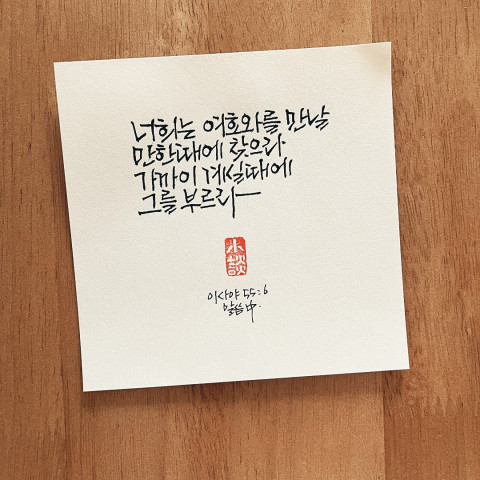 너희는 여호와를 만날
만한때에 찾으라
가까이 계실때에
그를 부르라
小談
이사야 55:6
말씀 中.